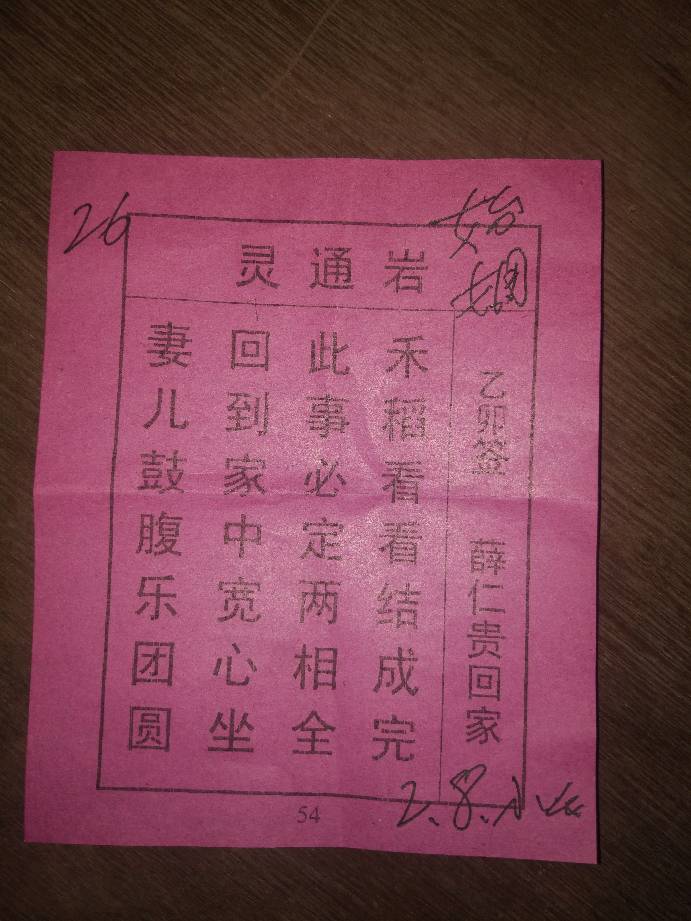 26
灵通岩
乙卯签 薛仁贵回家
禾稻看看结成完
此事必定两相全
回到家中宽心坐
妻儿鼓腹乐团圆
54